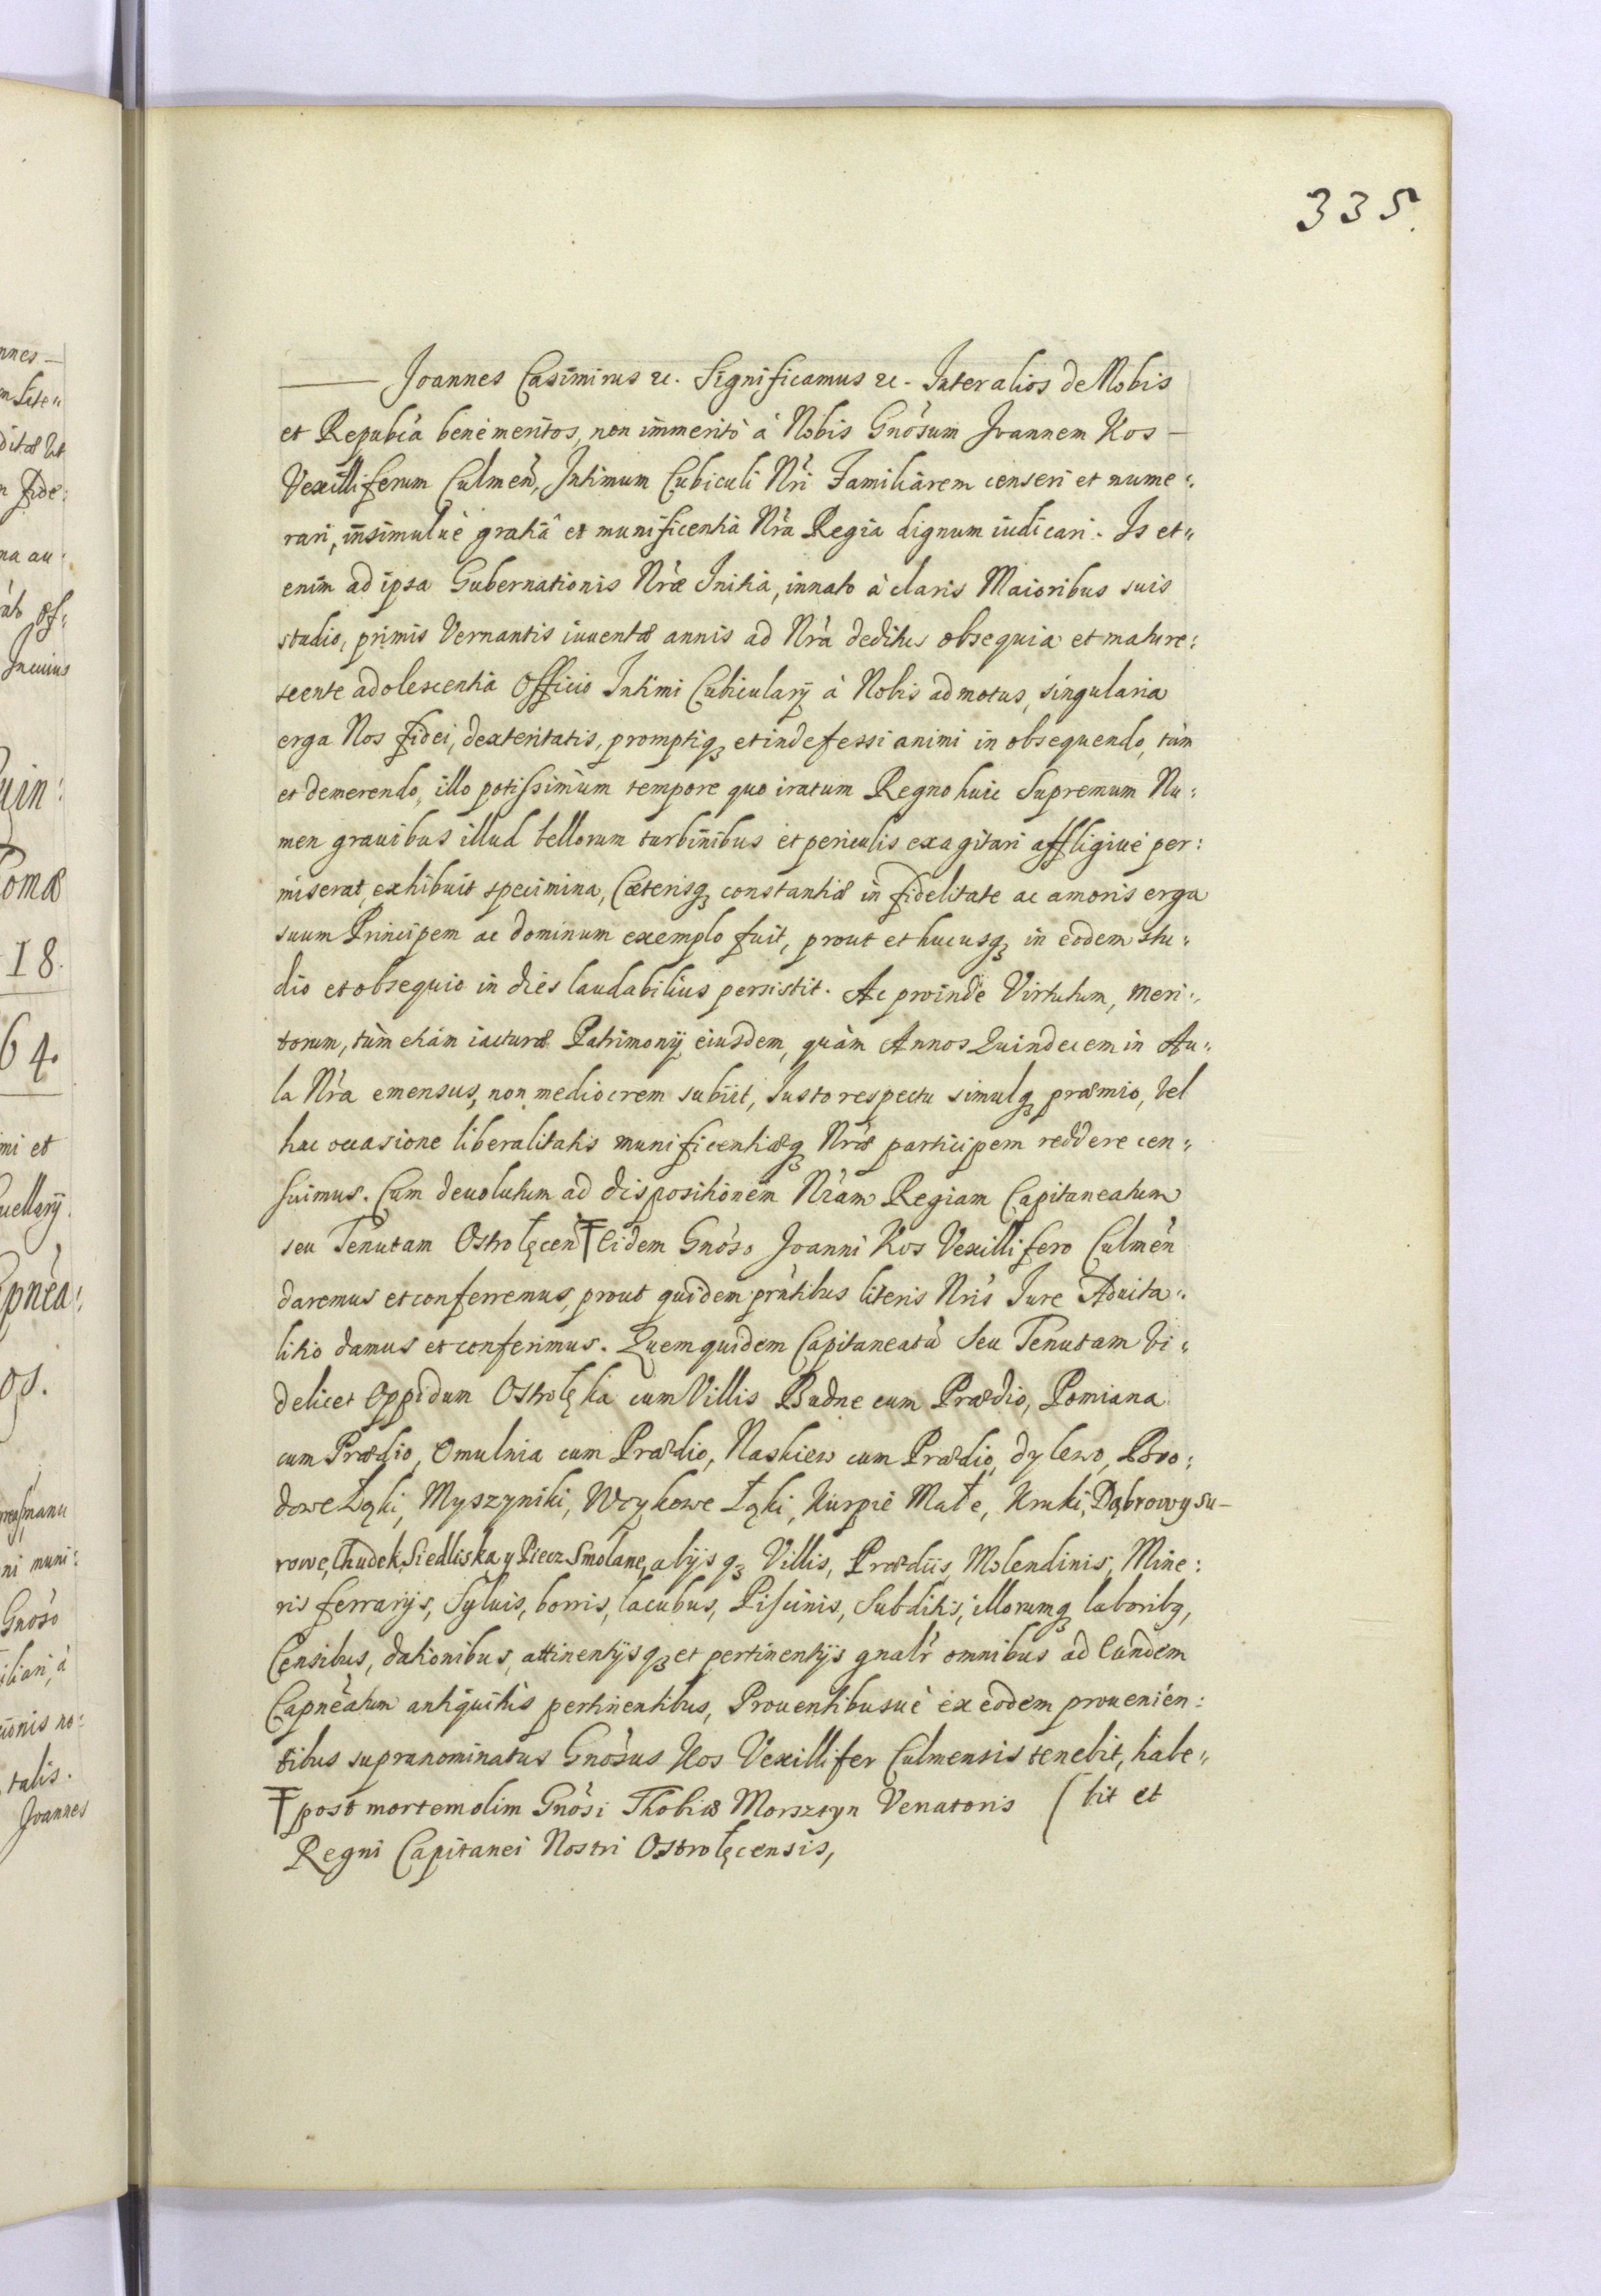 335.
Joannes Casimirus etc. Significamus etc. Inter alios de Nobis
et Repubca bene meritos, non immerito à Nobis Gnosum Joannem Kos
Vexilliferum Culmen, Intimum Cubiculi Nri Familiarem censeri et nume:
rari, insimulue gratiâ et munificentia Nra Regia dignum iudicari. Is et"
enim ad ipsa Gubernationis Nræ Initia, innato à claris Maioribus suis
studio, primis Vernantis iuuentæ annis ad Nra deditus obsequia et mature:
scente adolescentia Officio Intimi Cubicularij à Nobis admotus, singularia
erga Nos fidei, dexteritatis, promptiq3 et indefessi animi in obsequendo, tùm
et demerendo, illo potissimùm tempore quo iratum Regno huic Supremum Nu:
men grauibus illud bellorum turbinibus et periculis exagitari affligiue per:
miserat, exhibuit specimina, Cæterisq3 constantiæ in fidelitate ac amoris erga
suum Principem ac dominum exemplo fuit, prout et hucusq3 in eodem stu"
dio et obsequio in dies laudabilius persistit. Ac proinde Virtutum, meri"
torum, tùm etiam iacturæ Patrimonij eiusdem, quàm Annos Quindecem in Au"
la Nra emensus, non mediocrem subiit, Justo respectu simulq3 præmio, Vel
hac occasione liberalitatis munificentiæq3 Nræ participem reddere cen"
suimus. Cum deuolutum ad dispositionem Nram Regiam Capitaneatum
seu Tenutam Ostrołęcen ╤ Eidem Gnoso Joanni Kos Vexillifero Culmen
daremus et conferremus, prout quidem prntibus literis Nris Jure Aduita"
litio damus et conferimus. Quem quidem Capitaneatu Seu Tenutam Vi"
delicet Oppidum Ostrolęka cum Villis Budne cum Prædio, Pomiana
cum Prædio, Omulnia cum Prædio, Naskiew cum Prædio, Dylewo, Bro:
dowe Łąki, Myszyniki, Wzykowe Łąki, Kurpie Małe, Kruki, Dąbrowy Su-
rowe, Chudek, Siedliska y Piecz Smolane, alijsq3 Villis, Prædiis, Molendinis, Mine:
ris ferrarijs, Syluis, borris, lacubus, Piscinis, Subditis, illorumq3 laborib9,
Censibus, dationibus, attinentijsq3 et pertinentijs gnalr omnibus ad Eundem
Capneatum antiquitùs pertinentibus, Prouentibusuè ex eodem prouenien:
tibus supranominatus Gnosus Kos Vexillifer Culmensis tenebit, habe"
╤ post mortem olim Gnosi Thobiæ Morsztyn Venatoris (bit et
Regni Capitanei Nostri Ostrolęcensis,